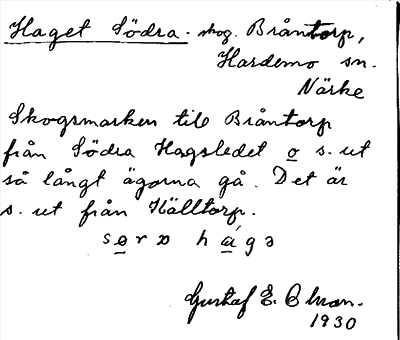 Haget Södra. skog. Bråntorp,
Hardemo sn.
Närke
Skogsmarken till Bråntorp
från Södra Hagsledet o s. ut
så långt ägorna gå. Det är
s. ut från Källtorp.
Gustaf E.
1930